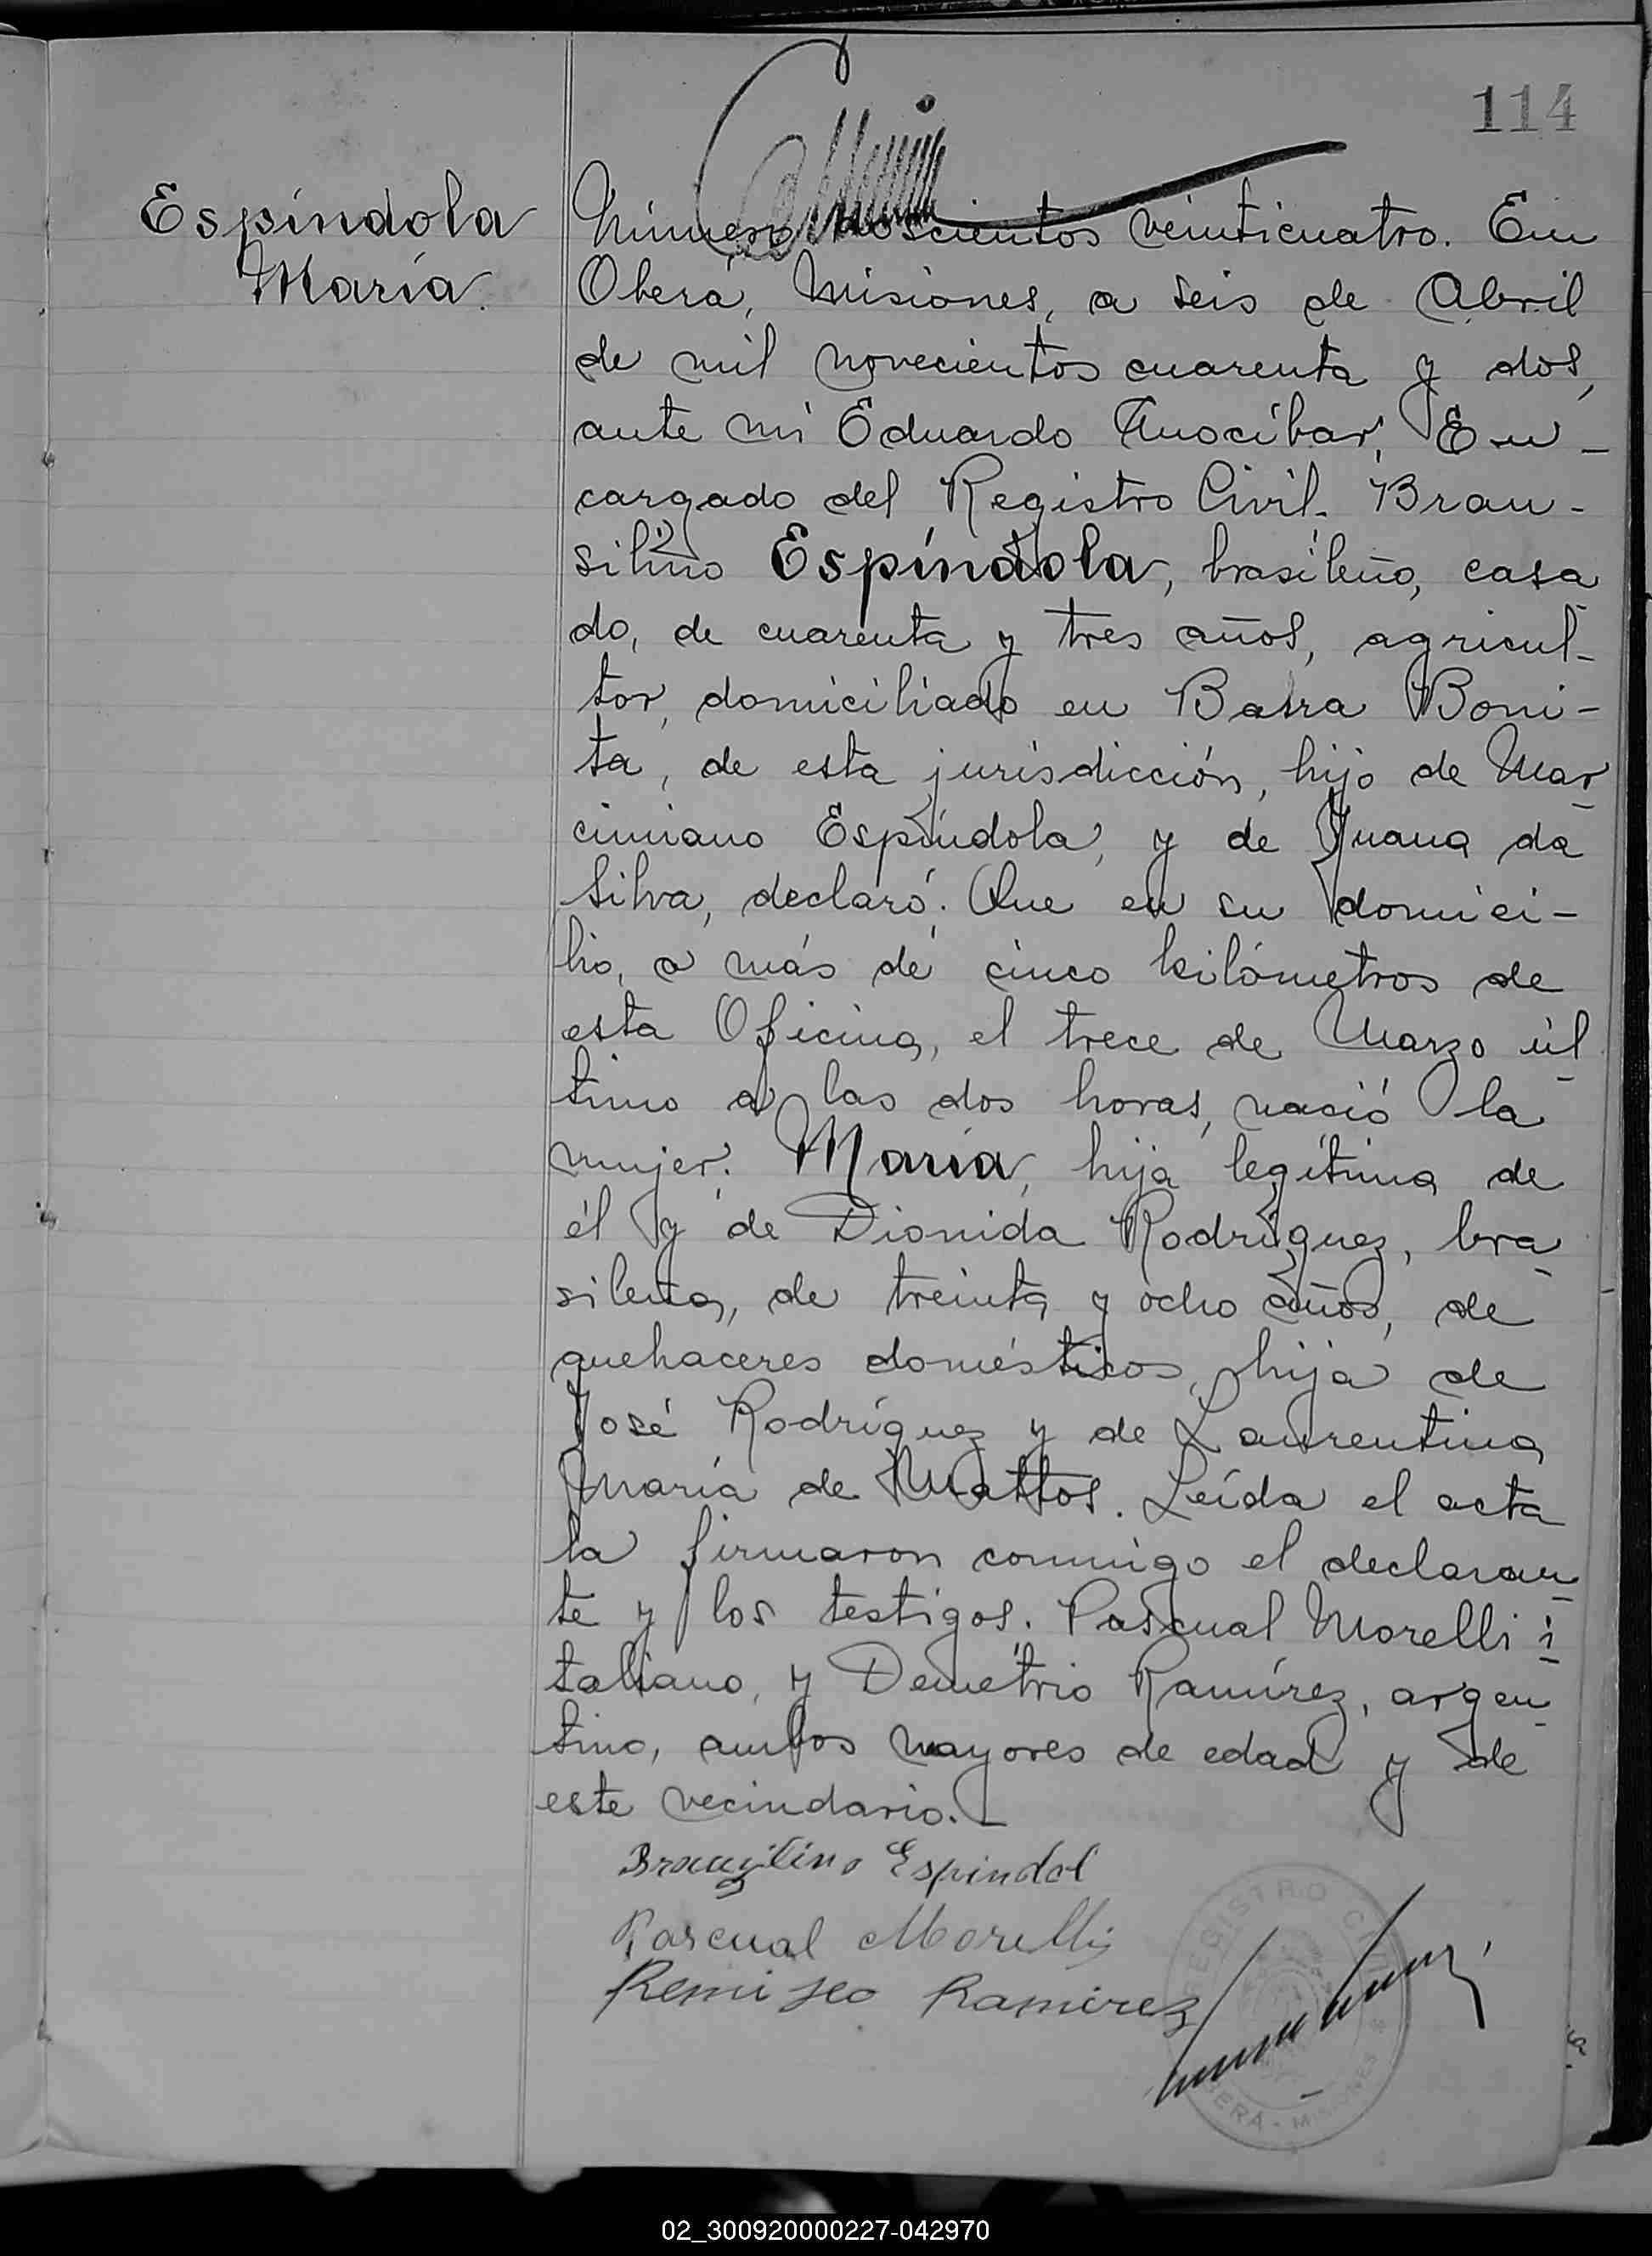 114
Espíndola
María.
Número doscientos veinticuatro. En
Oberá, Misiones, a seis de Abril
de mil novecientos cuarenta y dos,
ante mí Eduardo Anocíbar, En-
cargado del Registro Civil. Bran-
silino Espíndola, brasileño, casa
do, de cuarenta y tres años, agricul-
tor, domiciliado en Barra Boni-
ta, de esta jurisdicción, hijo de Mar
cimiano Espíndola, y de Juana da
Silva, declaró: Que en su domici-
lio, a más de cinco kilómetros de
esta Oficina, el trece de Marzo úl
timo a las dos horas, nació la
mujer: María, hija legítima de
él y de Dionida Rodríguez, bra
sileña, de treinta y ocho años, de
quehaceres domésticos, hija de
José Rodríguez y de Laurentina
María de Mattos. Leída el acta
la firmaron conmigo el declaran
te y los testigos: Pascual Morelli i
taliano, y Demetrio Ramírez, argen
tino, ambos mayores de edad y de
este vecindario.-
Espindol
Pascual Morelli
Ramirez
REGISTRO CIVIL
OBERÁ - MISIONES
02_300920000227-042970